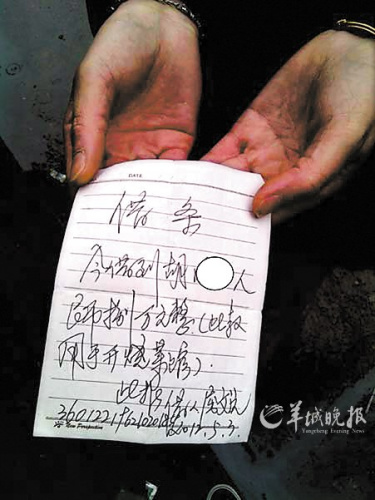 DATE
借条
今借到胡 人
民币拾万元整(此款
用于开
此据 借款人
2012.5.3.
羊城晚报
Yangcheng Evening News